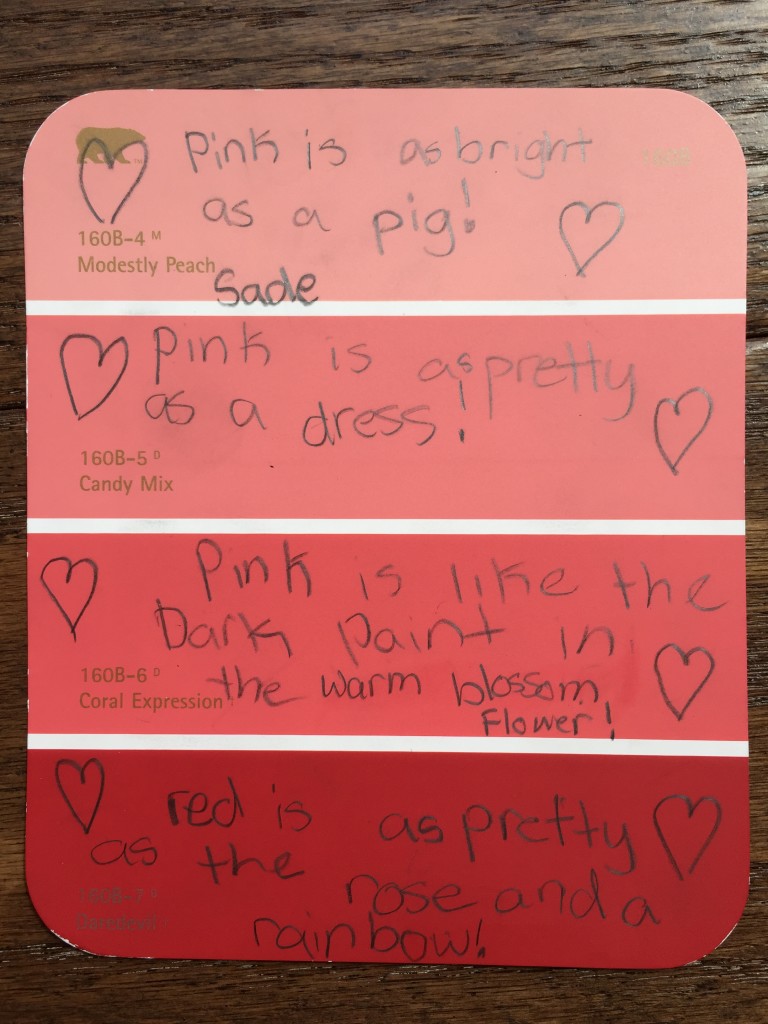 Pink is as bright
as a pig!
160B-4 M
Modestly Peach
Sade
Pink is as pretty
as a dress!
160B-5 D
Candy Mix
Pink is like the
Dark paint in
the warm blossom
Flower!
160B-6 D
Coral Expression
red is as pretty
as the rose and a
rainbow!
160B-7 D
Daredevil